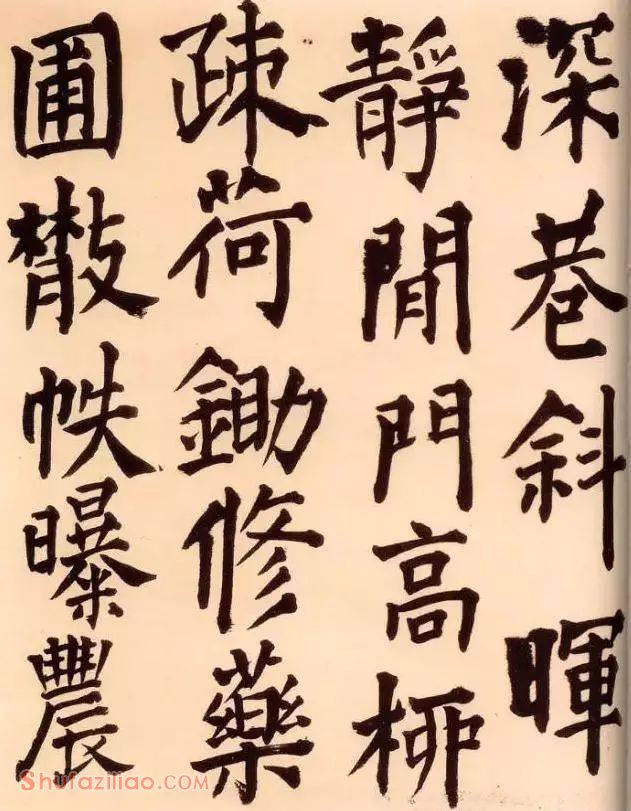 深巷斜暉
靜閒門高柳
疎荷鋤修藥
圃散帙曝農
Shufaziliao.COM